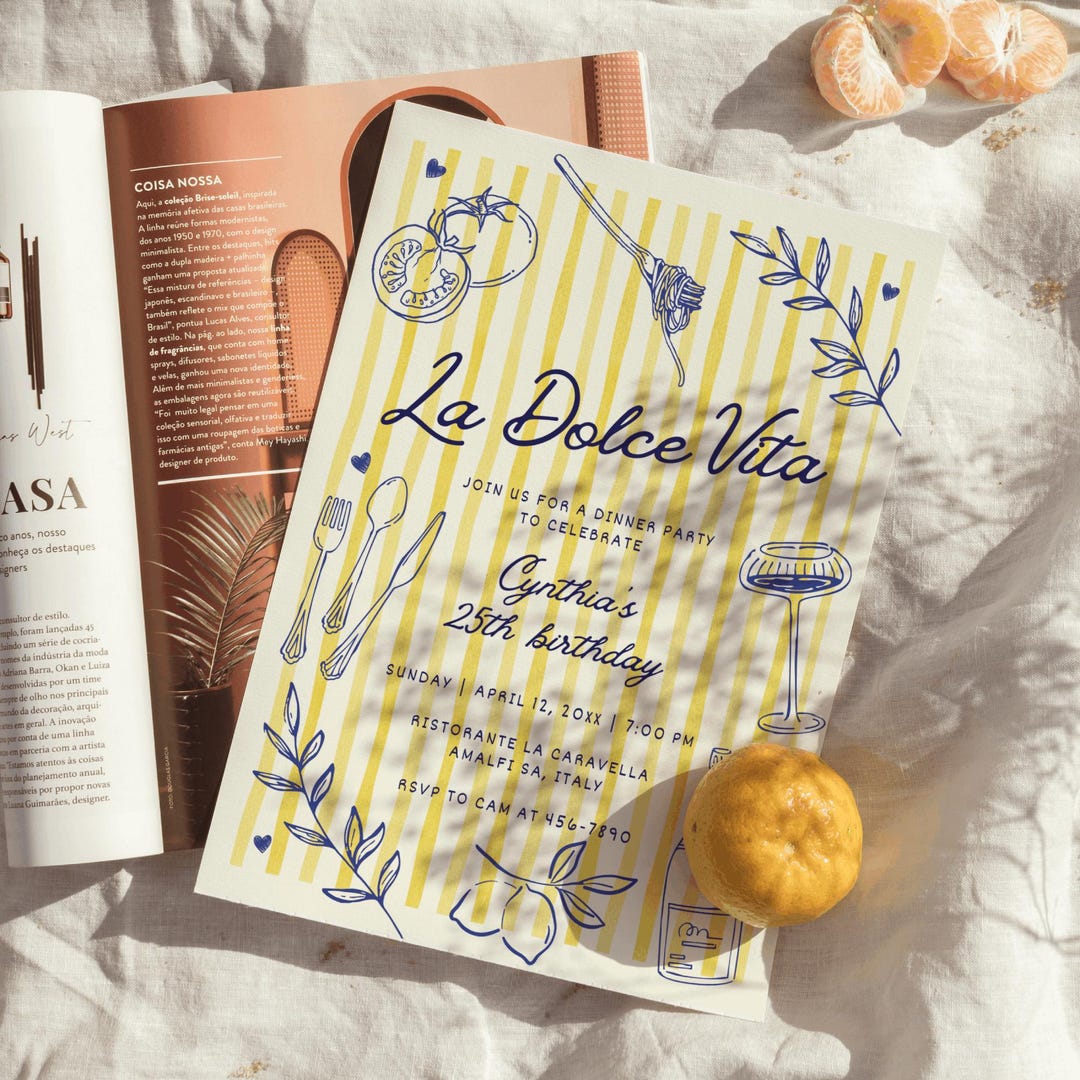 as West
ASA
ço anos, nosso
onheça os destaques
signers
consultor de estilo.
mplo, foram lançadas 45
cluindo um série de cocria-
nomes da indústria da moda
Adriana Barra, Okan e Luiza
desenvolvidas por um time
mpre de olho nos principais
mundo da decoração, arqui-
arte em geral. A inovação
por conta de uma linha
em parceria com a artista
"Estamos atentos às coisas
o planejamento anual,
responsáveis por propor novas
Luana Guimarães, designer.
COISA NOSSA
Aqui, a coleção Brise-soleil, inspirada
na memória afetiva das casas brasileiras.
A linha reúne formas modernistas,
dos anos 1950 e 1970, com o design
minimalista. Entre os destaques, hits
como a dupla madeira + palhinha
ganham uma proposta atualizada.
"Essa mistura de referências – design
japonês, escandinavo e brasileiro –,
também reflete o mix que compõe o
Brasil", pontua Lucas Alves, consultor
de estilo. Na pág. ao lado, nossa linha
de fragrâncias, que conta com home
sprays, difusores, sabonetes líquidos
e velas, ganhou uma nova identidade.
Além de mais minimalistas e genderless,
as embalagens agora são reutilizáveis.
"Foi muito legal pensar em uma
coleção sensorial, olfativa e traduzir
isso com uma roupagem das boticas e
farmácias antigas", conta Mey Hayashi,
designer de produto.
FOTO: DOUGLAS GARCIA
La Dolce Vita
JOIN US FOR A DINNER PARTY
TO CELEBRATE
Cynthia's
25th birthday
SUNDAY | APRIL 12, 20XX | 7:00 PM
RISTORANTE LA CARAVELLA
AMALFI SA, ITALY
RSVP TO CAM AT 456-7890